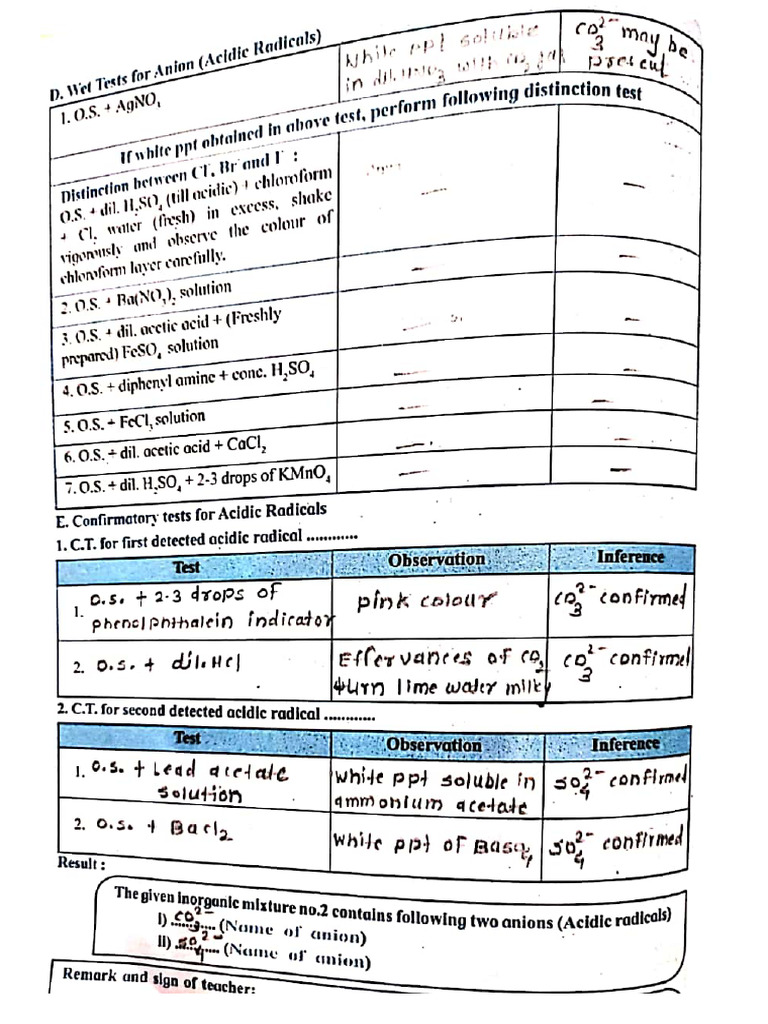 D. Wet Tests for Anion (Acidic Radicals)
1. O.S. + AgNO₃
White ppt soluble
in dil. HNO₃ with CO₂ gas
CO₃²⁻ may be
present
If white ppt obtained in above test, perform following distinction test
Distinction between Cl⁻, Br⁻ and I⁻ :
O.S. + dil. H₂SO₄ (till acidic) + chloroform
+ Cl₂ water (fresh) in excess, shake
vigorously and observe the colour of
chloroform layer carefully.
—
—
2. O.S. + Ba(NO₃)₂ solution
—
—
3. O.S. + dil. acetic acid + (Freshly
prepared) FeSO₄ solution
—
—
4. O.S. + diphenyl amine + conc. H₂SO₄
—
—
5. O.S. + FeCl₃ solution
—
—
6. O.S. + dil. acetic acid + CaCl₂
—
—
7. O.S. + dil. H₂SO₄ + 2-3 drops of KMnO₄
—
—
E. Confirmatory tests for Acidic Radicals
1. C.T. for first detected acidic radical ............
Test
Observation
Inference
1. O.S. + 2-3 drops of
phenolphthalein indicator
pink colour
CO₃²⁻ confirmed
2. O.S. + dil. HCl
Effervances of CO₂
turn lime water milky
CO₃²⁻ confirmed
2. C.T. for second detected acidic radical ............
Test
Observation
Inference
1. O.S. + Lead acetate
solution
White ppt soluble in
ammonium acetate
SO₄²⁻ confirmed
2. O.S. + BaCl₂
White ppt of BaSO₄
SO₄²⁻ confirmed
Result :
The given inorganic mixture no.2 contains following two anions (Acidic radicals)
I) CO₃²⁻ .... (Name of anion)
II) SO₄²⁻ .... (Name of anion)
Remark and sign of teacher: